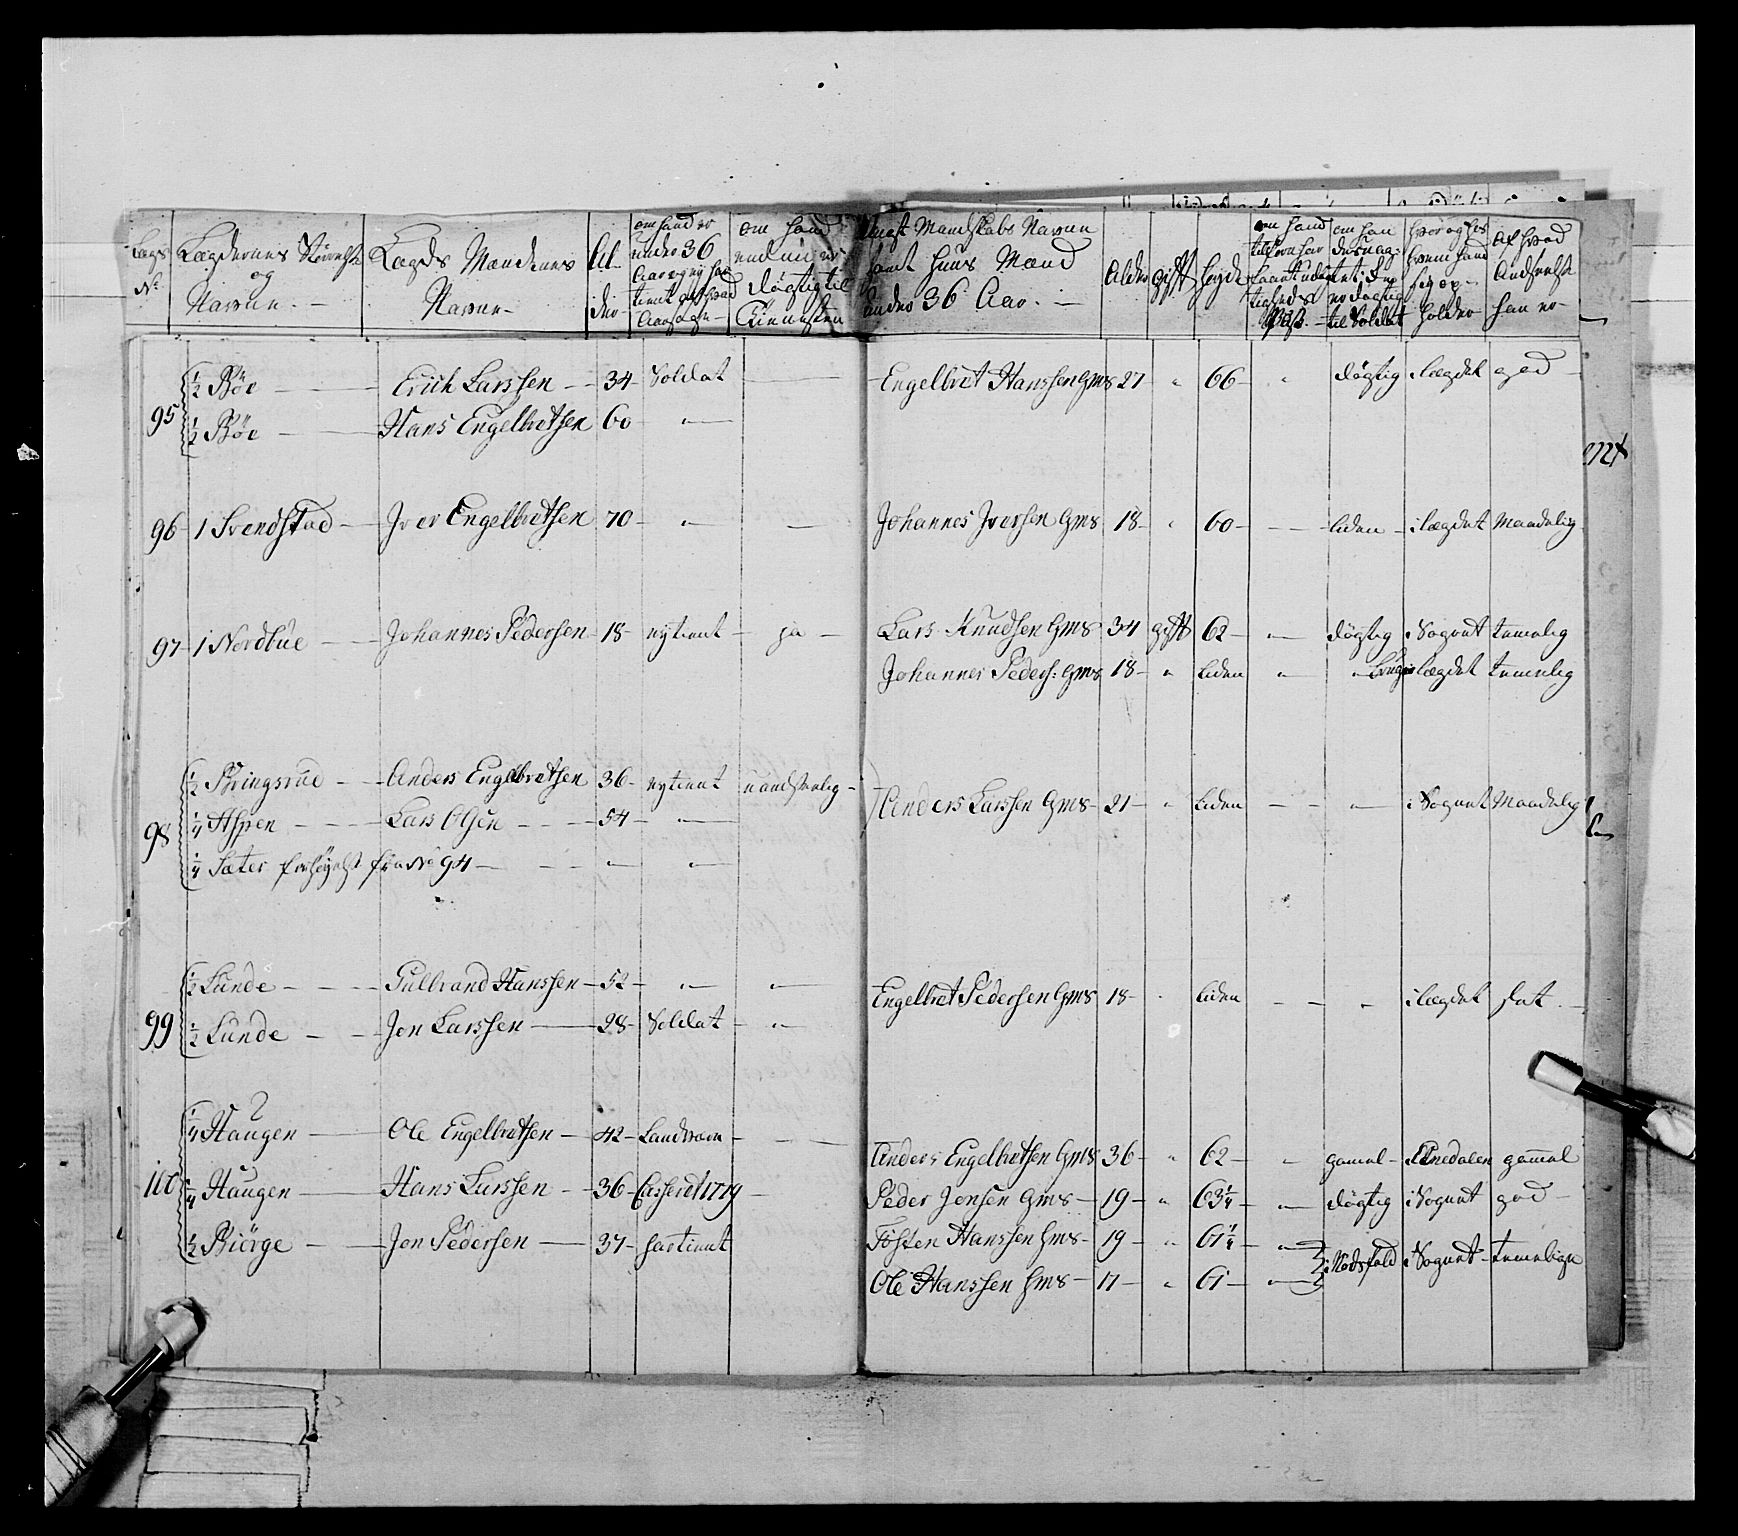 Lægs No
Lægdernes Størrelse og Navne
Lægds Mændenes Navne
Alder
om hand er under 36 Aar
om hand
Døgtig til Tienneste
Ungt Mandskabs Navne samt Huus Mænd under 36 Aar
Alder
gift
Høyde
om hand
om han
er døgtig til Soldat
holder
Af hvad Anseelse han er
95 ½ Bøe Erich Larssen 34 Soldat Engelbret Hanssen Gms 27 " 66 " døgtig i lægdet god
½ Bøe Hans Engelbretsen 60 "
96 1 Svendstad Iver Engelbretsen 70 " Johannes Iversen Gms 18 " 60 liden i lægdet Maadelig
97 1 Nordbue Johannes Pedersen 18 ey tient ja Lars Knudsen Gms 34 gift 62 " døgtig i Sognet temelig
Johannes Peders: Gms 18 " liden " " i lægdet temelig
98 ½ Bringsrud Anders Engelbretsen 36 ey tient uandseelig Anders Larssen Gms 21 " liden i Sognet Maadelig
¼ Aspen Lars Olsen 54 "
¼ Sæter fra No 94 " "
99 ½ Lunde Gulbrand Hanssen 52 " " Engelbret Pedersen Gms 18 liden " i lægdet
½ Lunde Jon Larssen 28 Soldat "
100 ¼ Haugen Ole Engelbretsen 42 Landværn Anders Engelbretsen Gms 36 " 62 " gamel gammel
¼ Haugen Hans Larssen 36 Casseret 1779 Peder Jonsen Gms 19 " 63¼ " døgtig i Sognet god
½ Biörge Jon Pedersen 37 har tient Tosten Hanssen Hms 19 " 61¼ "
Ole Hanssen Hms 17 " 61 " i Sognet